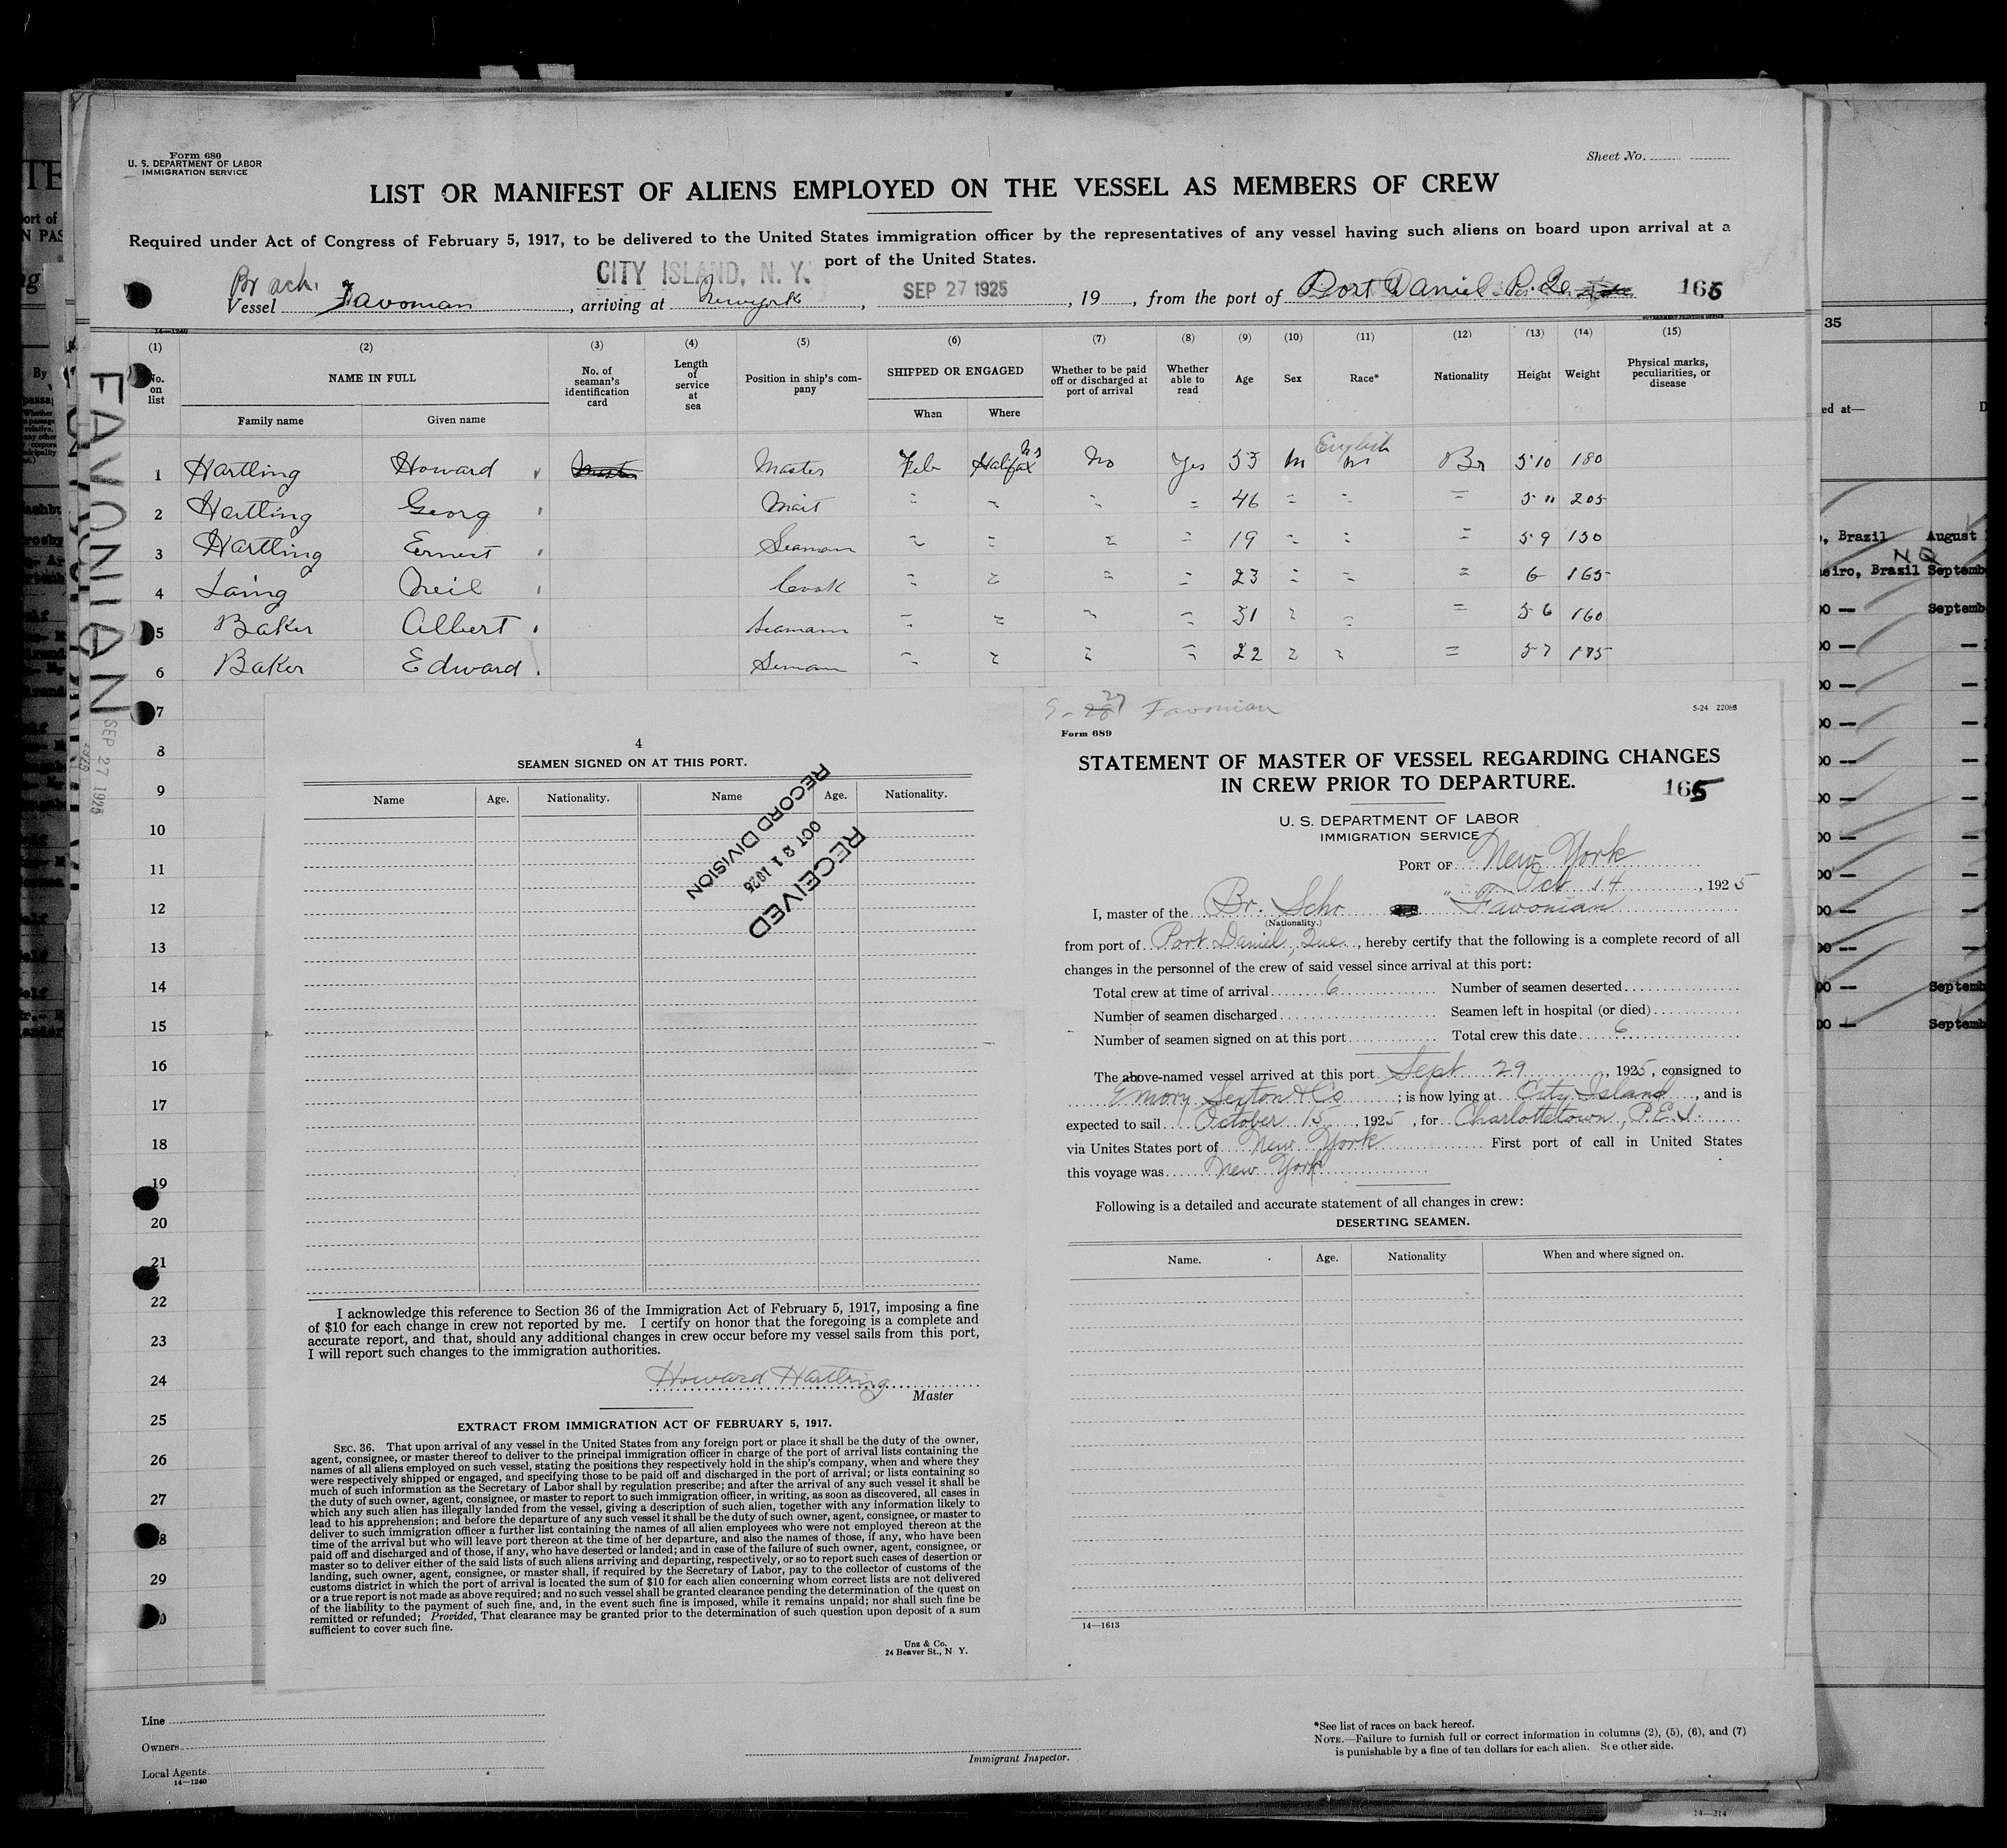 Form 680
U. S. DEPARTMENT OF LABOR
IMMIGRATION SERVICE
Sheet No.
LIST OR MANIFEST OF ALIENS EMPLOYED ON THE VESSEL AS MEMBERS OF CREW
Required under Act of Congress of February 5, 1917, to be delivered to the United States immigration officer by the representatives of any vessel having such aliens on board upon arrival at a
port of the United States.
CITY ISLAND, N. Y.
Vessel Favonian, arriving at Newyork, SEP 27 1925, 19, from the port of Port Daniel P. Q. 165
14—1240
(1) (2) (3) (4) (5) (6) (7) (8) (9) (10) (11) (12) (13) (14) (15)
No. on list
NAME IN FULL
Family name
Given name
No. of seaman's identification card
Length of service at sea
Position in ship's company
SHIPPED OR ENGAGED
When
Where
Whether to be paid off or discharged at port of arrival
Whether able to read
Age
Sex
Race*
Nationality
Height
Weight
Physical marks, peculiarities, or disease
1 Hartling Howard Master Feb Halifax NS No Yes 53 M English Br 5 10 180
2 Hartling Georg Mait " " " 46 " " " 5 11 205
3 Hartling Ernest Seaman " " " " 19 " " " 5 9 130
4 Laing Neil Cook " " " " 23 " " " 6 165
5 Baker Albert Seamann " " " " 31 " " " 5 6 160
6 Baker Edward Seman " " " " 22 " " " 5 7 175
7
8
9
10
11
12
13
14
15
16
17
18
19
20
21
22
23
24
25
26
27
28
29
30
FAVONIAN
SEP 27 1925
4
SEAMEN SIGNED ON AT THIS PORT.
Name Age. Nationality. Name Age. Nationality.
RECEIVED
OCT 21 1925
RECORD DIVISION
I acknowledge this reference to Section 36 of the Immigration Act of February 5, 1917, imposing a fine
of $10 for each change in crew not reported by me. I certify on honor that the foregoing is a complete and
accurate report, and that, should any additional changes in crew occur before my vessel sails from this port,
I will report such changes to the immigration authorities.
Howard Hartling
Master
EXTRACT FROM IMMIGRATION ACT OF FEBRUARY 5, 1917.
SEC. 36. That upon arrival of any vessel in the United States from any foreign port or place it shall be the duty of the owner,
agent, consignee, or master thereof to deliver to the principal immigration officer in charge of the port of arrival lists containing the
names of all aliens employed on such vessel, stating the positions they respectively hold in the ship's company, when and where they
were respectively shipped or engaged, and specifying those to be paid off and discharged in the port of arrival; or lists containing so
much of such information as the Secretary of Labor shall by regulation prescribe; and after the arrival of any such vessel it shall be
the duty of such owner, agent, consignee, or master to report to such immigration officer, in writing, as soon as discovered, all cases in
which any such alien has illegally landed from the vessel, giving a description of such alien, together with any information likely to
lead to his apprehension; and before the departure of any such vessel it shall be the duty of such owner, agent, consignee, or master to
deliver to such immigration officer a further list containing the names of all alien employees who were not employed thereon at the
time of the arrival but who will leave port thereon at the time of her departure, and also the names of those, if any, who have been
paid off and discharged and of those, if any, who have deserted or landed; and in case of the failure of such owner, agent, consignee, or
master so to deliver either of the said lists of such aliens arriving and departing, respectively, or so to report such cases of desertion or
landing, such owner, agent, consignee, or master shall, if required by the Secretary of Labor, pay to the collector of customs of the
customs district in which the port of arrival is located the sum of $10 for each alien concerning whom correct lists are not delivered
or a true report is not made as above required; and no such vessel shall be granted clearance pending the determination of the quest on
of the liability to the payment of such fine, and, in the event such fine is imposed, while it remains unpaid; nor shall such fine be
remitted or refunded; Provided, That clearance may be granted prior to the determination of such question upon deposit of a sum
sufficient to cover such fine.
Unz & Co.
24 Beaver St., N. Y.
27 Favonian
S-24 22088
Form 689
STATEMENT OF MASTER OF VESSEL REGARDING CHANGES
IN CREW PRIOR TO DEPARTURE.
165
U. S. DEPARTMENT OF LABOR
IMMIGRATION SERVICE
PORT OF New York
Oct 14, 1925
I, master of the Br. Schr "Favonian
(Nationality.)
from port of Port Daniel, Que., hereby certify that the following is a complete record of all
changes in the personnel of the crew of said vessel since arrival at this port:
Total crew at time of arrival 6 Number of seamen deserted
Number of seamen discharged Seamen left in hospital (or died)
Number of seamen signed on at this port Total crew this date 6
The above-named vessel arrived at this port Sept 29, 1925, consigned to
Emory Sexton & Co; is now lying at City Island, and is
expected to sail October 15, 1925, for Charlottetown, P.E.I.
via Unites States port of New York First port of call in United States
this voyage was New York
Following is a detailed and accurate statement of all changes in crew:
DESERTING SEAMEN.
Name. Age. Nationality When and where signed on.
14—1613
Line
Owners
Local Agents
14—1240
Immigrant Inspector.
*See list of races on back hereof.
NOTE.—Failure to furnish full or correct information in columns (2), (5), (6), and (7)
is punishable by a fine of ten dollars for each alien. See other side.
14—214
35
ed at—
, Brazil August
eiro, Brazil Septemb
Septemb
Septemb
Septemb